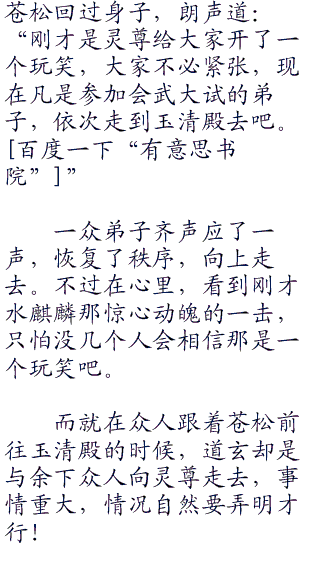 苍松回过身子，朗声道：
“刚才是灵尊给大家开了一
个玩笑，大家不必紧张，现
在凡是参加会武大试的弟
子，依次走到玉清殿去吧。
[百度一下“有意思书
院”]”
一众弟子齐声应了一
声，恢复了秩序，向上走
去。不过在心里，看到刚才
水麒麟那惊心动魄的一击，
只怕没几个人会相信那是一
个玩笑吧。
而就在众人跟着苍松前
往玉清殿的时候，道玄却是
与余下众人向灵尊走去，事
情重大，情况自然要弄明才
行！